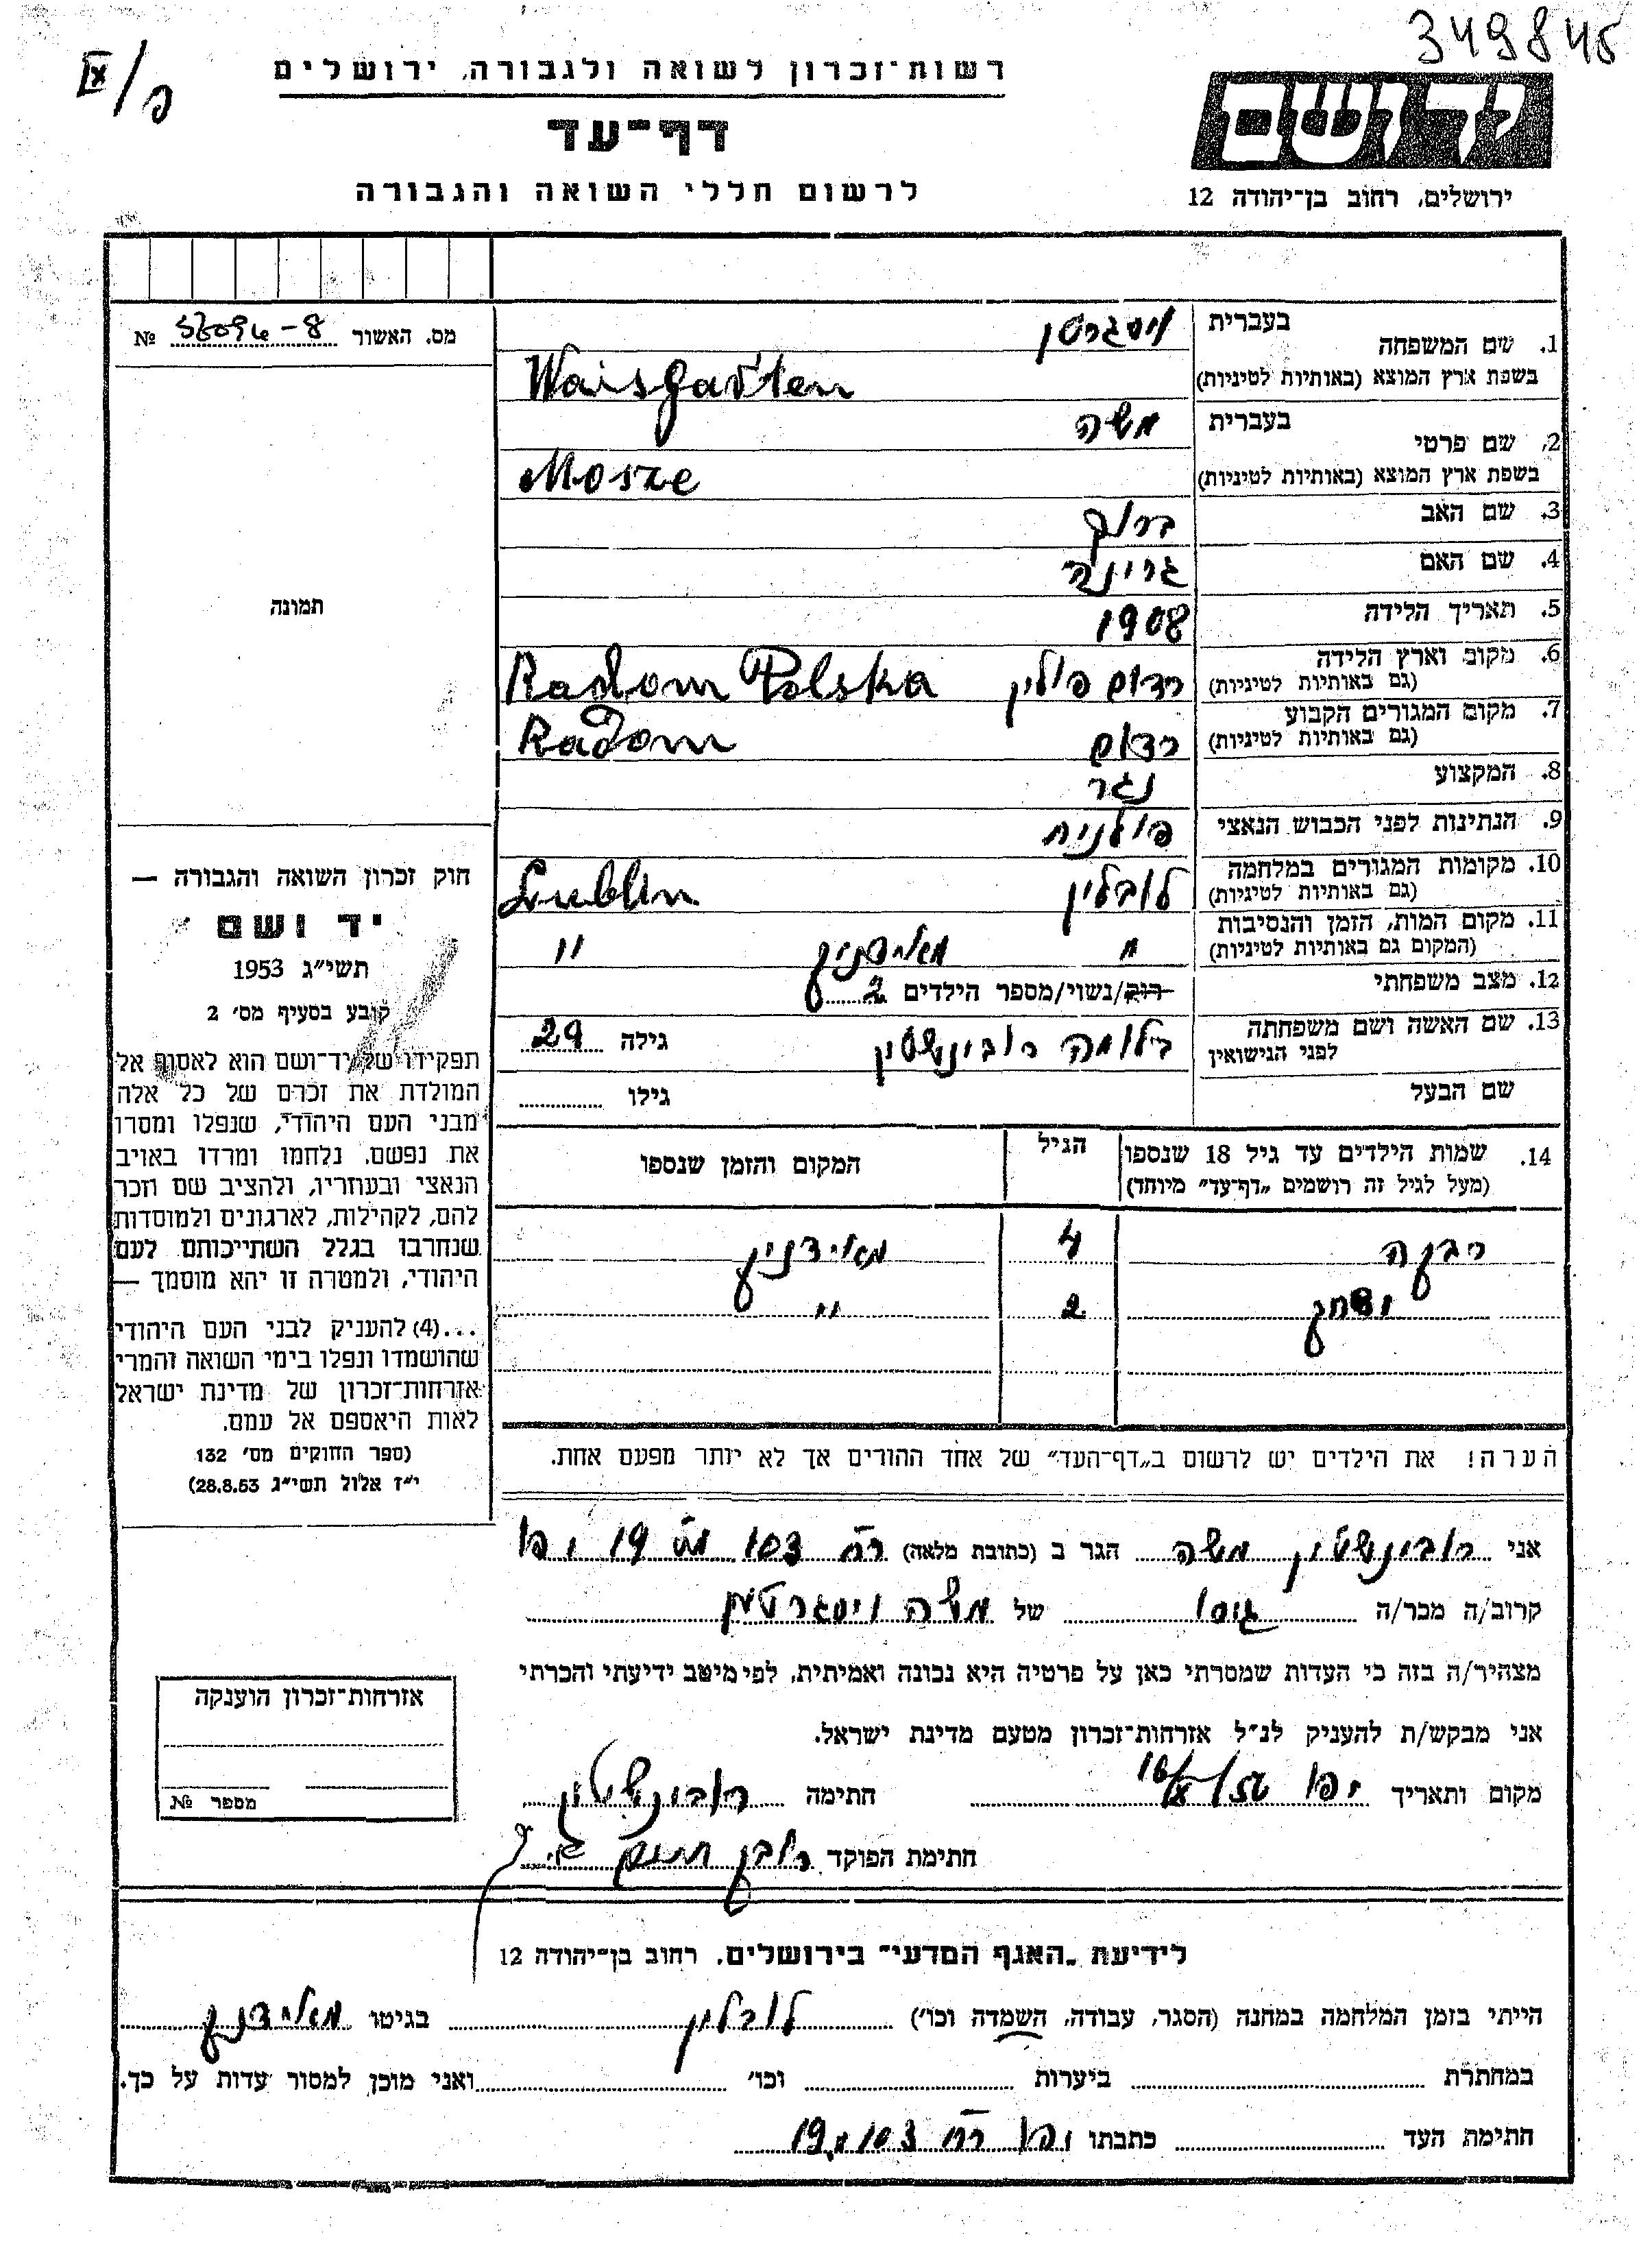 349845
רשות־זכרון לשואה ולגבורה, ירושלים
דף־עד
לרשום חללי השואה והגבורה
יד ושם
ירושלים, רחוב בן־יהודה 12
מס. האשור №
1. שם המשפחה בעברית ויסגרטן
בשפת ארץ המוצא (באותיות לטיניות) Waisgarten
2. שם פרטי בעברית משה
בשפת ארץ המוצא (באותיות לטיניות) Mosze
3. שם האב ברוך
4. שם האם
5. תאריך הלידה 1908
6. מקום וארץ הלידה (גם באותיות לטיניות) רדום פולין Radom Polska
7. מקום המגורים הקבוע (גם באותיות לטיניות) רדום Radom
8. המקצוע נגר
9. הנתינות לפני הכבוש הנאצי פולנית
10. מקומות המגורים במלחמה (גם באותיות לטיניות) לובלין Lublin
11. מקום המות, הזמן והנסיבות (המקום גם באותיות לטיניות) " מאידנק "
12. מצב משפחתי רוק/נשוי/מספר הילדים 2
13. שם האשה ושם משפחתה לפני הנישואין רובינשטין גילה 29
שם הבעל גילו
14. שמות הילדים עד גיל 18 שנספו (מעל לגיל זה רושמים "דף־עד" מיוחד) הגיל המקום והזמן שנספו
רבקה 4 מאידנק
יצחק 2 "
הערה! את הילדים יש לרשום ב"דף־העד" של אחד ההורים אך לא יותר מפעם אחת.
תמונה
חוק זכרון השואה והגבורה —
יד ושם
תשי"ג 1953
קובע בסעיף מס' 2
תפקידו של יד־ושם הוא לאסוף אל
המולדת את זכרם של כל אלה
מבני העם היהודי, שנפלו ומסרו
את נפשם, נלחמו ומרדו באויב
הנאצי ובעוזריו, ולהציב שם וזכר
להם, לקהילות, לארגונים ולמוסדות
שנחרבו בגלל השתייכותם לעם
היהודי, ולמטרה זו יהא מוסמך —
...(4) להעניק לבני העם היהודי
שהושמדו ונפלו בימי השואה והמרי
אזרחות־זכרון של מדינת ישראל
לאות היאספם אל עמם.
(ספר החוקים מס' 132
י"ז אלול תשי"ג 28.8.53)
אני רובינשטין משה הגר ב (כתובת מלאה) רח 103 מס 19 יפו
קרוב/ה מכר/ה גיסו של משה ויסגרטן
מצהיר/ה בזה כי העדות שמסרתי כאן על פרטיה היא נכונה ואמיתית, לפי מיטב ידיעתי והכרתי
אני מבקש/ת להעניק לנ"ל אזרחות־זכרון מטעם מדינת ישראל.
מקום ותאריך יפו חתימה רובינשטין
חתימת הפוקד
אזרחות־זכרון הוענקה
מספר №
לידיעת "האגף המדעי" בירושלים, רחוב בן־יהודה 12
הייתי בזמן המלחמה במחנה (הסגר, עבודה, השמדה וכו') לובלין בגיטו מאידנק
במחתרת ביערות וכו' ואני מוכן למסור עדות על כך.
חתימת העד כתבתו יפו רח 103 מ 19